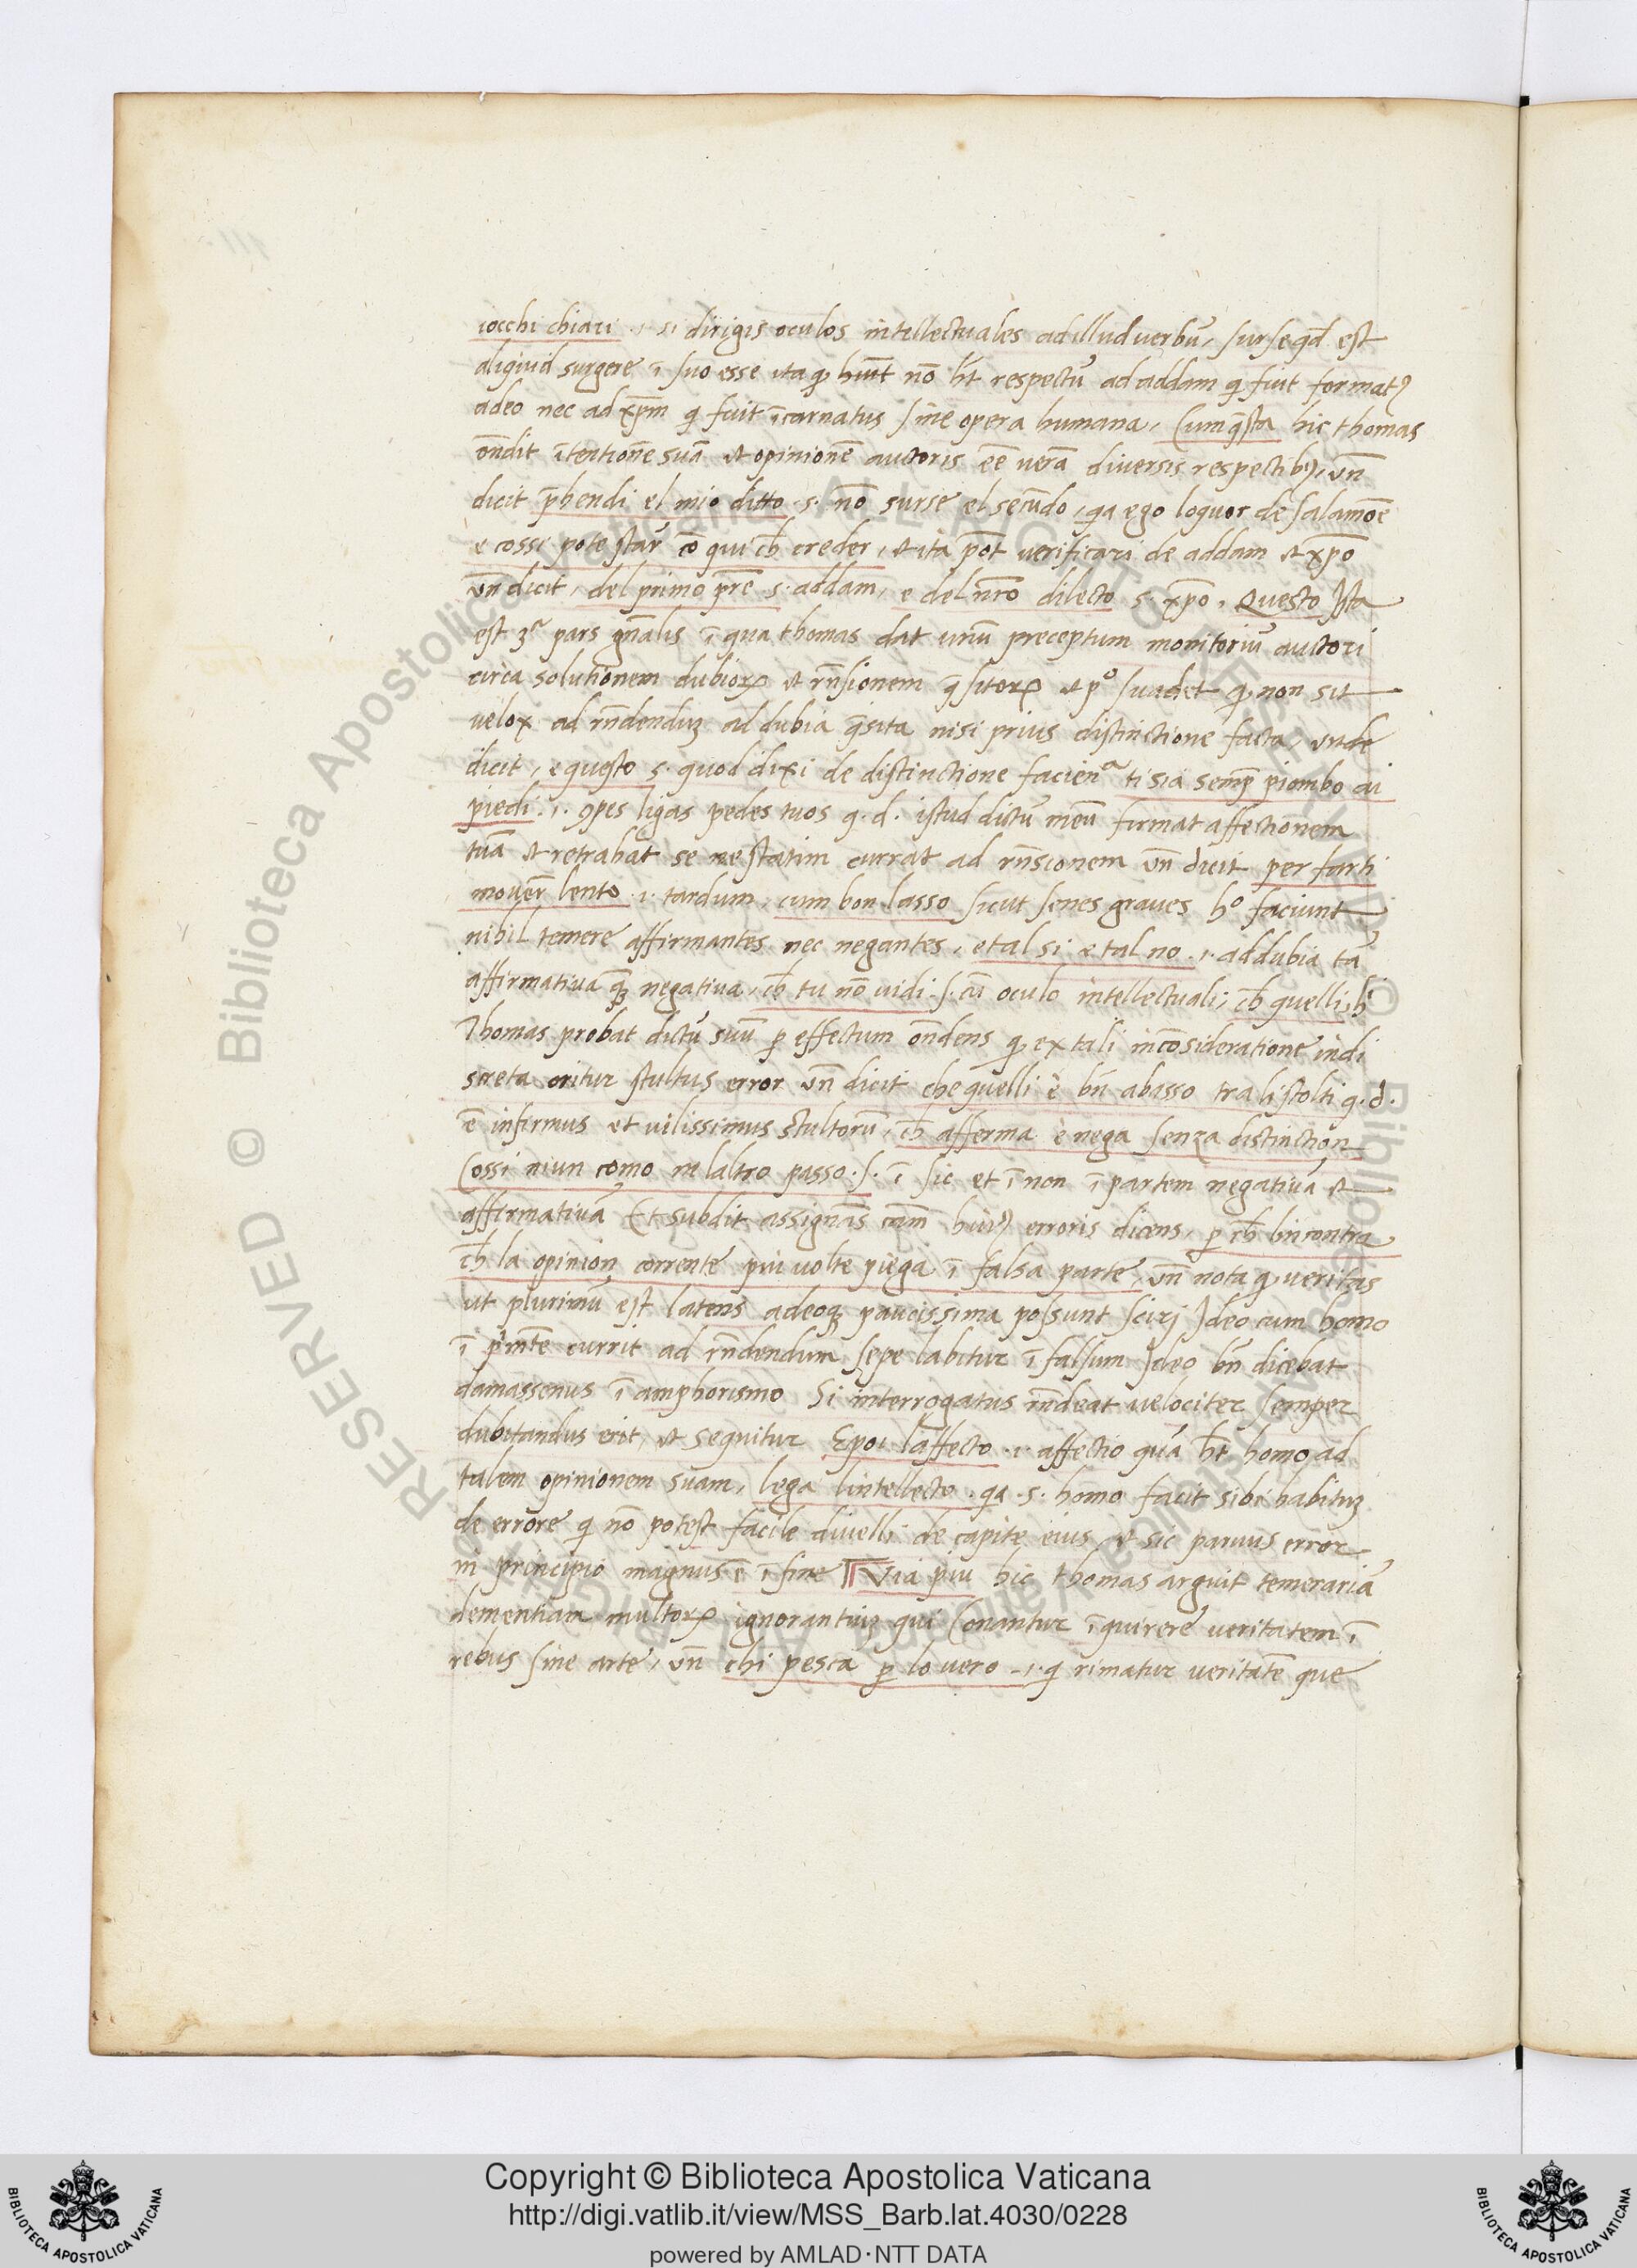 iocchi chiari .i. si dirigis oculos intellectuales ad illud verbū, surse qd̄ est
aliquid surgere ī suo esse ita qꝫ huīt nō ht̄ respectū ad addam qi fuit formatꝰ
adeo nec ad xp̄m qi fuit īcarnatus sine opera humana, Cum q̄sta hic thomas
ōndit ītentionē suā et opinionē auctoris eē verā diversis respectibꝰ, vn̄
dicit p̄hendi el mio ditto .s. nō surse el secūdo, qa ego loquor de salamōe
e cossi pote star cō qui ch̄ creder, et ita pōt verificari de addam et xp̄o
vn̄ dicit, del primo pr̄e s. addam, e del nr̄o dilecto s. xp̄o, Questo Ista
est 3ª pars gn̄alis ī qua thomas dat unū preceptum monitoriū auctori
circa solutionem dubioꝝ et rn̄sionem q̄sitoꝝ et pº suadet qꝫ non sit
velox ad rn̄dendūꝫ ad dubia q̄sita nisi prius distinctione facta, vnde
dicit, e questo s. quod dixi de distinctione facienª ti sia semp̄ piombo ai
piedi .i. ꝯpes ligās pedes tuos q. d. istud dictū meū firmat affectionem
tuā et retrahat se ne statim currat ad rn̄sionem vn̄ dicit per farti
mover lento .i. tardum, cum hon lasso sicut senes graves hº faciunt
nihil temere affirmantes nec negantes, e tal si e tal no .i. ad dubia tā
affirmativa quā negativa, ch̄ tu nō vidi .s. cū oculo intellectuali, ch̄ quelli, hi
Thomas probat dictū suū ꝑ effectum ōndens qꝫ ex tali incōsideratione indi
screta oritur stultus error vn̄ dicit che quelli è bn̄ abasso tra li stolti q. d.
ē infirmus et vilissimus stultorū, ch̄ afferma e nega senza distinction
Cossi niun como in laltro passo .s. ī sic et ī non ī partem negativā et
affirmativā Et subdit assignās cām huiꝰ erroris dicens, ꝑ ch̄ lincontra
ch̄ la opinion corrente piu volte piega ī falsa parte, vn̄ nota qꝫ veritas
ut plurimū est latens adeoqꝫ paucissima possunt sciri Ideo cum homo
currit ad rn̄dendum sepe labitur ī falsum Ideo bn̄ dicebat
damassenus ī amphorismo Si interrogatus rn̄deat velociter semper
dubitandus erit, et sequitur Epoi laffecto .i. affectio quā ht̄ homo ad
talem opinionem suam, lega lintellecto . qa .s. homo facit sibi habitūꝫ
de errore qi nō potest facile divelli de capite eius et sic parvus error
in principio magnus ē ī fine ¶ Via piu hic thomas arguit temerariā
dementiam multoꝝ ignorantiūꝫ qui Conantur īquirere veritatem ī
rebus sine arte, vn̄ chi pesca ꝑ lo vero .i. qi rimatur veritatē que
© Biblioteca Apostolica Vaticana ALL RIGHTS RESERVED
Copyright © Biblioteca Apostolica Vaticana
http://digi.vatlib.it/view/MSS_Barb.lat.4030/0228
powered by AMLAD·NTT DATA
BIBLIOTECA APOSTOLICA VATICANA
BIBLIOTECA APOSTOLICA VATICANA